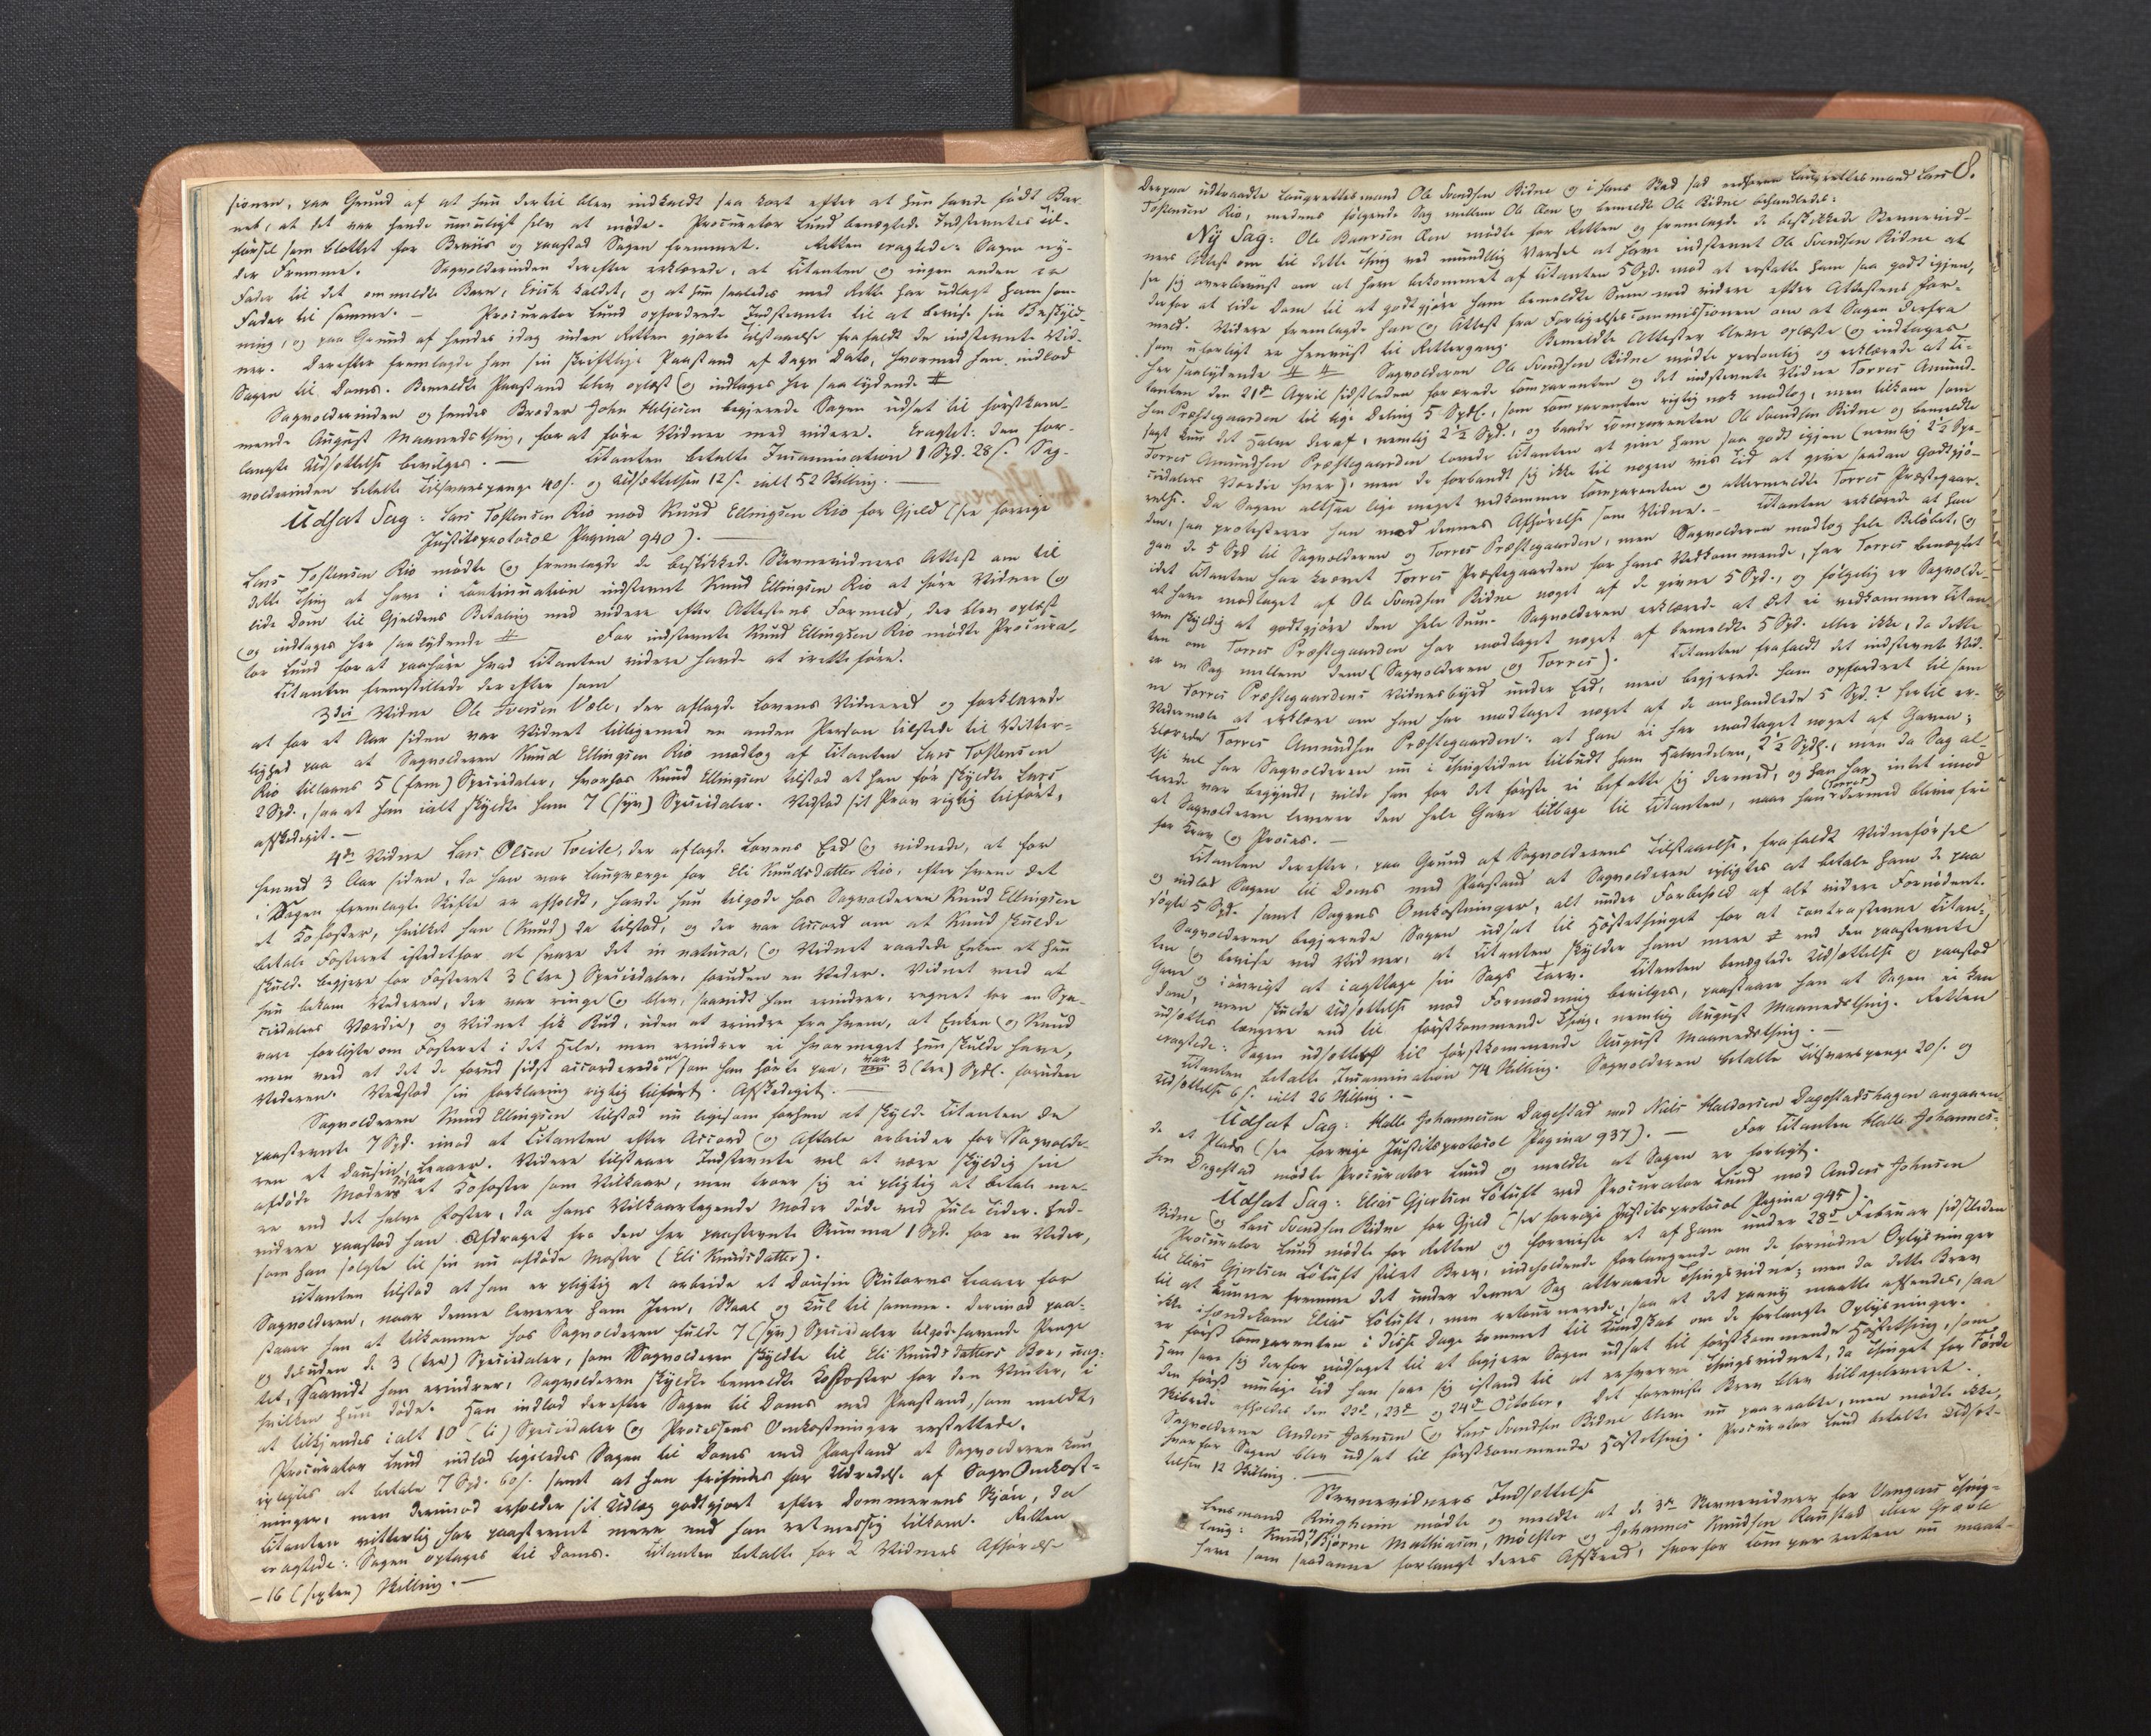 sionen, paa Grund af at hun dertil blev indkaldt saa kort efter at hun havde födt Bar-
net, at det var hende umuligt selv at møde. Procurator Lund benægtede Indstevntes Til-
førsel som blottet for Beviis og paastod Sagen fremmet. Retten eragtede: Sagen ny-
der Fremme. Sagvolderinden derefter erklærede, at Citanten og ingen anden er
Fader til det ommeldte Barn, kaldet, og at hun saaledes med Rette har udlagt ham som
Fader til samme. — Procurator Lund opfordrede Indstevnte til at bevise sin Beskyld-
ning, og paa Grund af hendes idag inden Retten gjorte Tilstaaelse frafaldt de indstevnte Vid-
ner. Derefter fremlagde han sin skriftlige Paastand af Dags Dato, hvormed han indlod
Sagen til Doms. Bemeldte Paastand blev oplæst og indtages her saalydende #
Sagvolderinden og hendes Broder John Heljesen begjerede Sagen udsat til førstkom-
mende August Maanedsthing, for at føre Vidner med videre. Eragtet: den for-
langte Udsættelse bevilges. — Citanten betalte Incamination 1 Spd. 28 s. Sag-
volderinden betalte Tilsvarspenge 40 s. og Udsættelsen 12 s. ialt 52 Skilling. —
Udsat Sag: Lars Tostensen Rio mod Knud Ellingsen Rio for Gjeld (see forrige
Justitsprotocol Pagina 940). —
Lars Tostensen Rio mødte og fremlagde de beskikkede Stevnevidners Attest om til
dette Thing at have i Continuation indstevnt Knud Ellingsen Rio at høre Vidner og
lide Dom til Gjeldens Betaling med videre efter Attestens Formeld, der blev oplæst
og indtages her saalydende # For indstevnte Knud Ellingsen Rio mødte Procura-
tor Lund for at paahøre hvad Citanten videre havde at iretteføre.
Citanten fremstillede derefter som
3die Vidne Ole Iversen Væle, der aflagde Lovens Vidneed og forklarede
at for et Aar siden var Vidnet tilligemed en anden Person tilstede til Vitter-
lighed paa at Sagvolderen Knud Ellingsen Rio modtog af Citanten Lars Tostensen
Rio tillaans 5 (fem) Speciedaler, hvorhos Knud Ellingsen tilstod at han før skyldte Lars
2 Spd., saa at han ialt skyldte ham 7 (syv) Speciedaler. Vedstod sit Prov rigtig tilført,
afskediget. —
4de Vidne Lars Olsen Tveite, der aflagde Lovens Eed og vidnede, at for
henved 3 Aar siden, da han var Laugværge for Eli Knudsdatter Rio, efter hvem det
i Sagen fremlagte Skifte er afholdt, havde hun tilgode hos Sagvolderen Knud Ellingsen
et Kofoster, hvilket han (Knud) da tilstod, og der var Accord om at Knud skulde
betale Fosteret istedetfor at svare det in natura, og Vidnet raadede Enken at hun
skulde begjere for Fosteret 3 (tre) Speciedaler, foruden en Veder. Vidnet veed at
hun bekom Vederen, der var ringe og blev, saavidt han erindrer, regnet for en Spe-
ciedalers Værdie, og Vidnet fik Bud, uden at erindre fra hvem, at Enken og Knud
vare forligte om Fosteret i det Hele, men erindrer ei hvormeget hun skulde have,
men veed at det de forud sidst accorderede om, som han hørte paa, var 3 (tre) Spdl. foruden
Vederen. Vedstod sin Forklaring rigtig tilført. Afskediget. —
Sagvolderen Knud Ellingsen tilstod nu ligesom forhen at skylde Citanten de
paastevnte 7 Spd. imod at Citanten efter Accord og Aftale arbeider for Sagvolde-
ren et Dousin Leaaer. Videre tilstaaer Indstevnte vel at være skyldig sin
afdøde Moders Søster et Kofoster som Vilkaar, men troer sig ei pligtig at betale me-
re end det halve Foster, da hans Vilkaartagende Moder døde ved Jule Tider. End-
videre paastod han Afdraget fra den her paastevnte Summa 1 Spd. for en Veder,
som han solgte til sin nu afdøde Moster (Eli Knudsdatter).
Citanten tilstod at han er pligtig at arbeide et Dousin Leaaer for
Sagvolderen, naar denne leverer ham Jern, Staal og Kul til samme. Derimod paa-
staaer han at tilkomme hos Sagvolderen fulde 7 (syv) Speciedaler tilgodehavende Penge
og desuden de 3 (tre) Speciedaler, som Sagvolderen skyldte til Eli Knudsdatters Boe,
tet, saavidt han erindrer, Sagvolderen skyldte bemeldte Kofoster for den Vinter, i
hvilken hun døde. Han indlod derefter Sagen til Doms med Paastand, som meldt,
at tilkjendes ialt 10 (ti) Speciedaler og Processens Omkostninger erstattede.
Procurator Lund indlod ligeledes Sagen til Doms med Paastand at Sagvolderen kun
ilegges at betale 7 Spd. 60 s. samt at han frifindes for Udredelse af Sagsomkost-
ninger, men derimod erholder sit Udlæg godtgjort efter Dommerens Skjøn, da
Citanten vitterlig har paastevnt mere end han retmessig tilkom. Retten
eragtede: Sagen optages til Doms. Citanten betalte for 2 Vidners Afhørelse
— 16 (sexten) Skilling. —
8.
Derpaa udtraadte Laugrettesmand Ole Svendsen Kidne og i hans Sted sad Laugrettesmand Lars
Tostensen Rio, medens følgende Sag mellem Ole Øen og bemeldte Ole Kidne behandledes:
Ny Sag: Ole Baarsen Øen mødte for Retten og fremlagde de beskikkede Stevnevid-
ners Attest om til dette Thing ved mundlig Varsel at have indstevnt Ole Svendsen Kidne at
see sig overbeviist om at have bekommet af Citanten 5 Spd. mod at erstatte ham saa godt igjen,
derfor at lide Dom til at godtgjøre ham bemeldte Sum med videre efter Attestens For-
meld. Videre fremlagde han og Attest fra Forligelsescommissionen om at Sagen derfra
som uforligt er henviist til Rettergang. Bemeldte Attester bleve oplæste og indtages
her saalydende # # Sagvolderen Ole Svendsen Kidne mødte personlig og erklærede at Ci-
tanten den 21de April sidstleden forærede Comparenten og det indstevnte Vidne Torres Amund-
sen Præstegaarden til lige Deling 5 Spdl., som Comparenten rigtig nok modtog, men tilkom som
sagt kun det Halve deraf, nemlig 2½ Spd., og baade Comparenten Ole Svendsen Kidne og bemeldte
Torres Amundsen Præstegaarden lovede Citanten at give ham saa godt igjen (nemlig 2½ Spe-
ciedalers Værdie hver), men de forbandt sig ikke til nogen vis Tid at give saadan Godtgjø-
relse. Da Sagen altsaa lige meget vedkommer Comparenten og oftermeldte Torres Præstegaar-
den, saa protesterer han mod dennes Afhørelse som Vidne. — Citanten erklærede at han
gav de 5 Spd til Sagvolderen og Torres Præstegaarden, men Sagvolderen modtog hele Beløbet, og
idet Citanten har krævet Torres Præstegaarden for hans Vedkommende, har Torres benægtet
at have modtaget af Ole Svendsen Kidne noget af de givne 5 Spd., og følgelig er Sagvolde-
ren skyldig at godtgjøre den hele Sum. Sagvolderen erklærede at det ei vedkommer Citan-
ten om Torres Præstegaarden har modtaget noget af bemeldte 5 Spd. eller ikke, da dette
er en Sag mellem dem (Sagvolderen og Torres). Citanten frafaldt det indstevnte Vid-
ne Torres Præstegaardens Vidnesbyrd under Eed, men begjerede ham opfordret til som
Vedermæle at erklære om han har modtaget noget af de omhandlede 5 Spd.? hertil er-
klærede Torres Amundsen Præstegaarden: at han ei har modtaget noget af Gaven;
thi vel har Sagvolderen nu i Thingtiden tilbudt ham Halvdelen, 2½ Spdl., men da Sag al-
lerede var begyndt, vilde han for det første ei befatte sig dermed, og han har intet imod
at Sagvolderen leverer den hele Gave tilbage til Citanten, naar han (Torres) dermed bliver frie
for Krav og Proces. —
Citanten derefter, paa Grund af Sagvolderens Tilstaaelse, frafaldt Vidneførsel
og indlod Sagen til Doms med Paastand at Sagvolderen ilegges at betale ham de paa
søgte 5 Spd. samt Sagens Omkostninger, alt under Forbehold af alt videre Fornødent.
Sagvolderen begjerede Sagen udsat til Høstethinget for at contrastevne Citan-
ten og bevise ved Vidner, at Citanten skylder ham mere # end den paastevnte
Gave og iøvrigt at iagttage sin Sags Tarv. Citanten benægtede Udsættelse og paastod
Dom, men skulde Udsættelse mod Formodning bevilges, paastaaer han at Sagen ei kan
udsættes længere end til førstkommende Thing, nemlig August Maanedsthing. Retten
eragtede: Sagen udsættes til førstkommende August Maanedsthing. —
Citanten betalte Incamination 74 Skilling. Sagvolderen betalte Tilsvarspenge 20 s. og
Udsættelse 6 s. ialt 26 Skilling. —
Udsat Sag: Halle Johannesen Dagestad mod Niels Haldorsen Dagestadshagen angaaen-
de et Plads (see forrige Justitsprotocol Pagina 937). — For Citanten Halle Johannes-
sen Dagestad mødte Procurator Lund og meldte at Sagen er forligt.
Udsat Sag: Elias Gjertsen Løtuft ved Procurator Lund mod Anders Johnsen
Kidne og Lars Svendsen Kidne for Gjeld (see forrige Justitsprotocol Pagina 945).
Procurator Lund mødte for Retten og foreviste et af ham under 28de Februar sidstleden
til Elias Gjertsen Løtuft skrevet Brev, indeholdende Forlangende om de fornødne Oplysninger
til at kunne fremme det under denne Sag attraaede Thingsvidne; men da dette Brev
ikke ihændekom Elias Løtuft, men retournerede, saa at det paany maatte afsendes, saa
er først Comparenten i disse Dage kommet til Kundskab om de forlangte Oplysninger.
Han saae sig derfor nødsaget til at begjere Sagen udsat til førstkommende Høstething, som
den først mulige Tid han saae sig istand til at erhverve Thingsvidnet, da Thinget for Førde
Skibrede afholdes den 22de, 23de og 24de October. Det foreviste Brev blev tilbageleveret.
Sagvolderne Anders Johnsen og Lars Svendsen Kidne bleve nu paaraabte, men mødte ikke,
hvorfor Sagen blev udsat til førstkommende Høstething. Procurator Lund betalte Udsæt-
telsen 12 Skilling. —
Stevnevidners Indsættelse
Lensmand Ringheim mødte og meldte at de 3de Stevnevidner for Vangens Thing-
laug: Knud Bjørne Mathiasen, Mølster og Johannes Knudsen Raustad eller Gravle
have som saadanne forlangt deres Afskeed, hvorfor Comparenten nu maat-